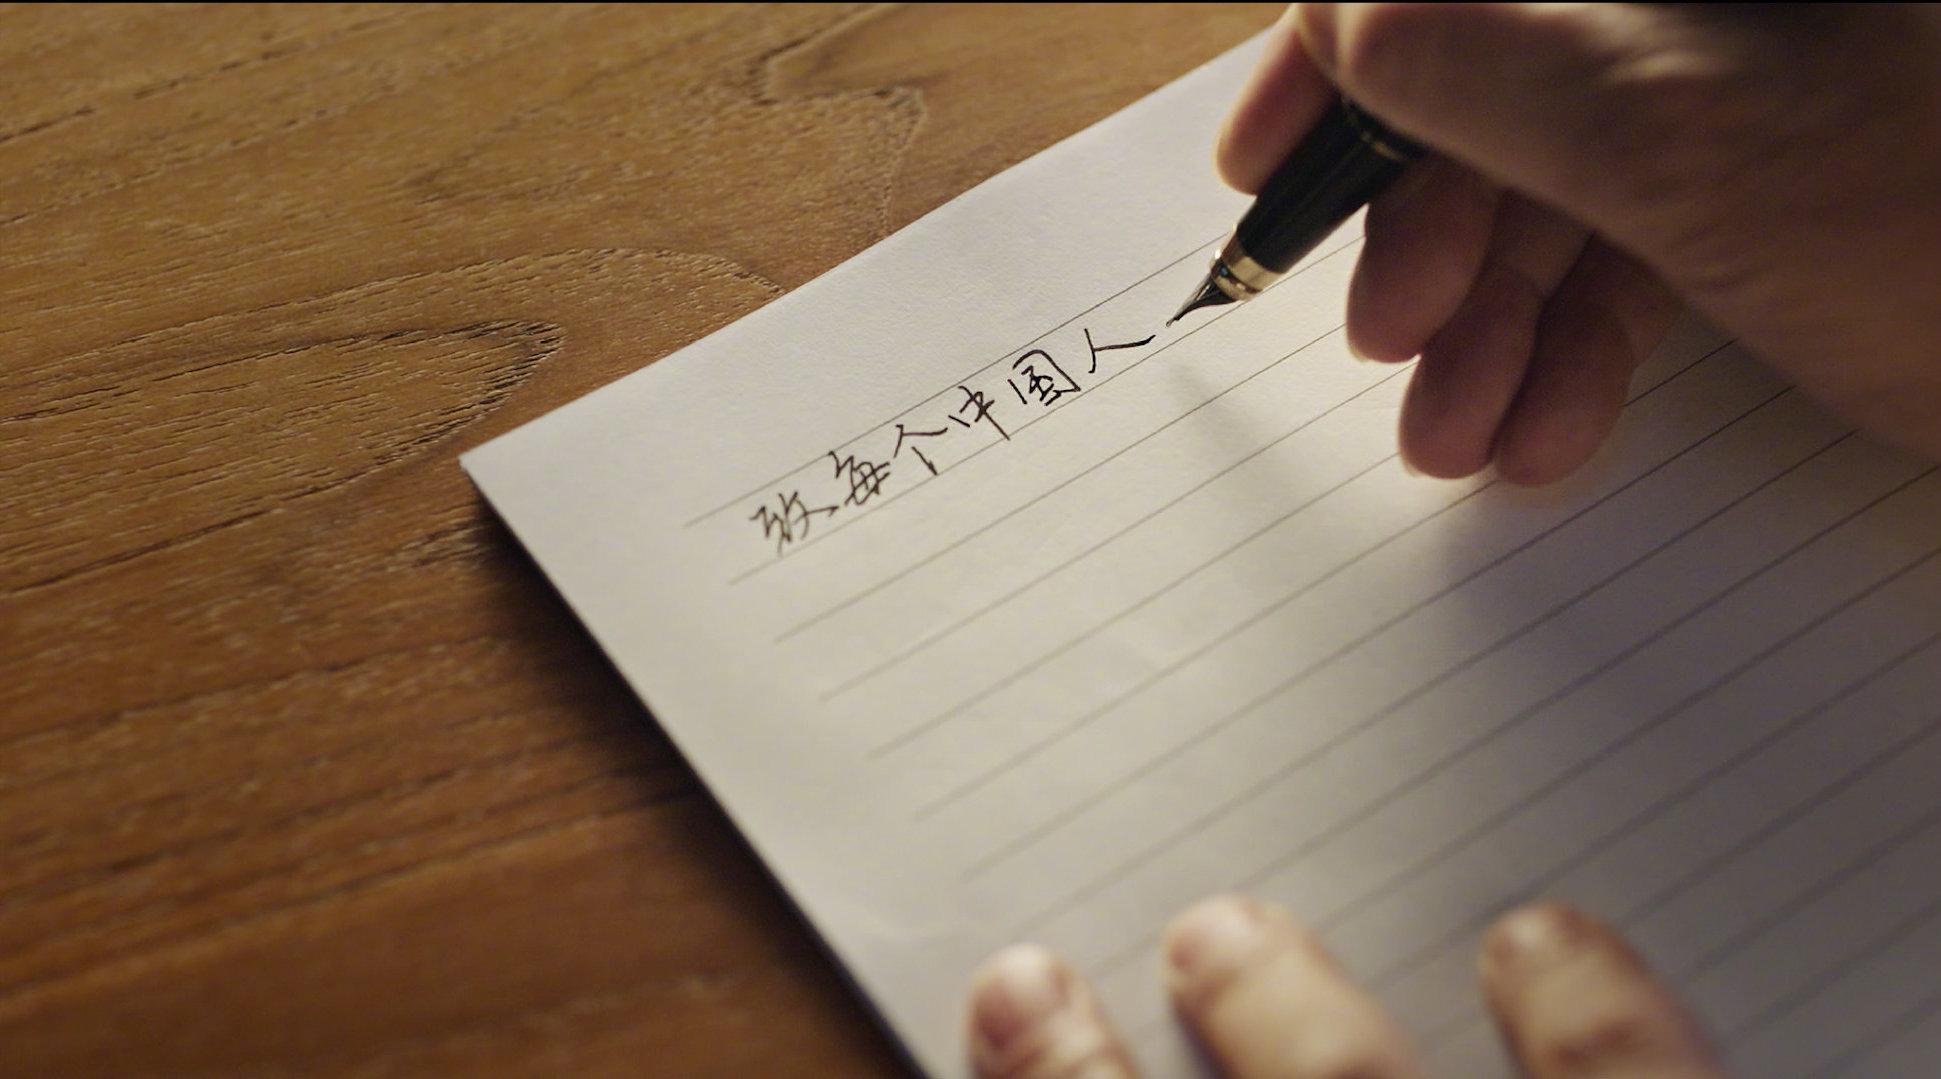 致每个中国人